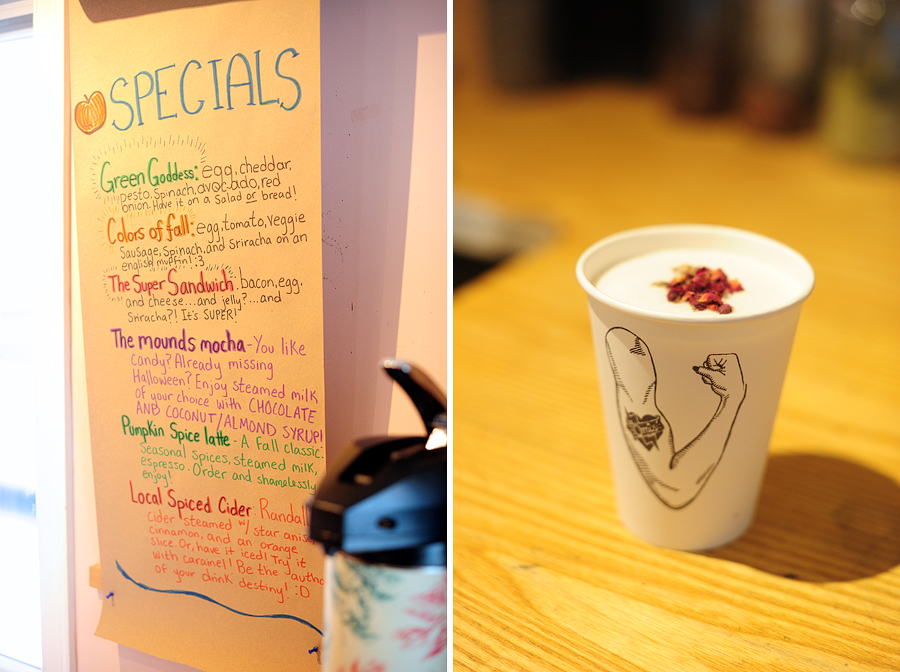 SPECIALS
Green Goddess: egg, cheddar,
pesto, Spinach, avocado, red
onion. Have it on a Salad or bread!
Colors of fall: egg, tomato, veggie
Sausage, Spinach, and Sriracha on an
english muffin! :3
The Super Sandwich: bacon, egg,
and cheese...and jelly?...and
Sriracha?! It's SUPER!
The mounds mocha - You like
candy? Already missing
Halloween? Enjoy steamed milk
of your choice with CHOCOLATE
AND COCONUT/ALMOND SYRUP!
Pumpkin Spice latte - A Fall classic:
Seasonal Spices, steamed milk,
espresso. Order and shamelessly
enjoy!
Local Spiced Cider: Randall
cider steamed w/ star anise,
cinnamon, and an orange
slice. Or, have it iced! Try it
with caramel! Be the
of your drink destiny! :D